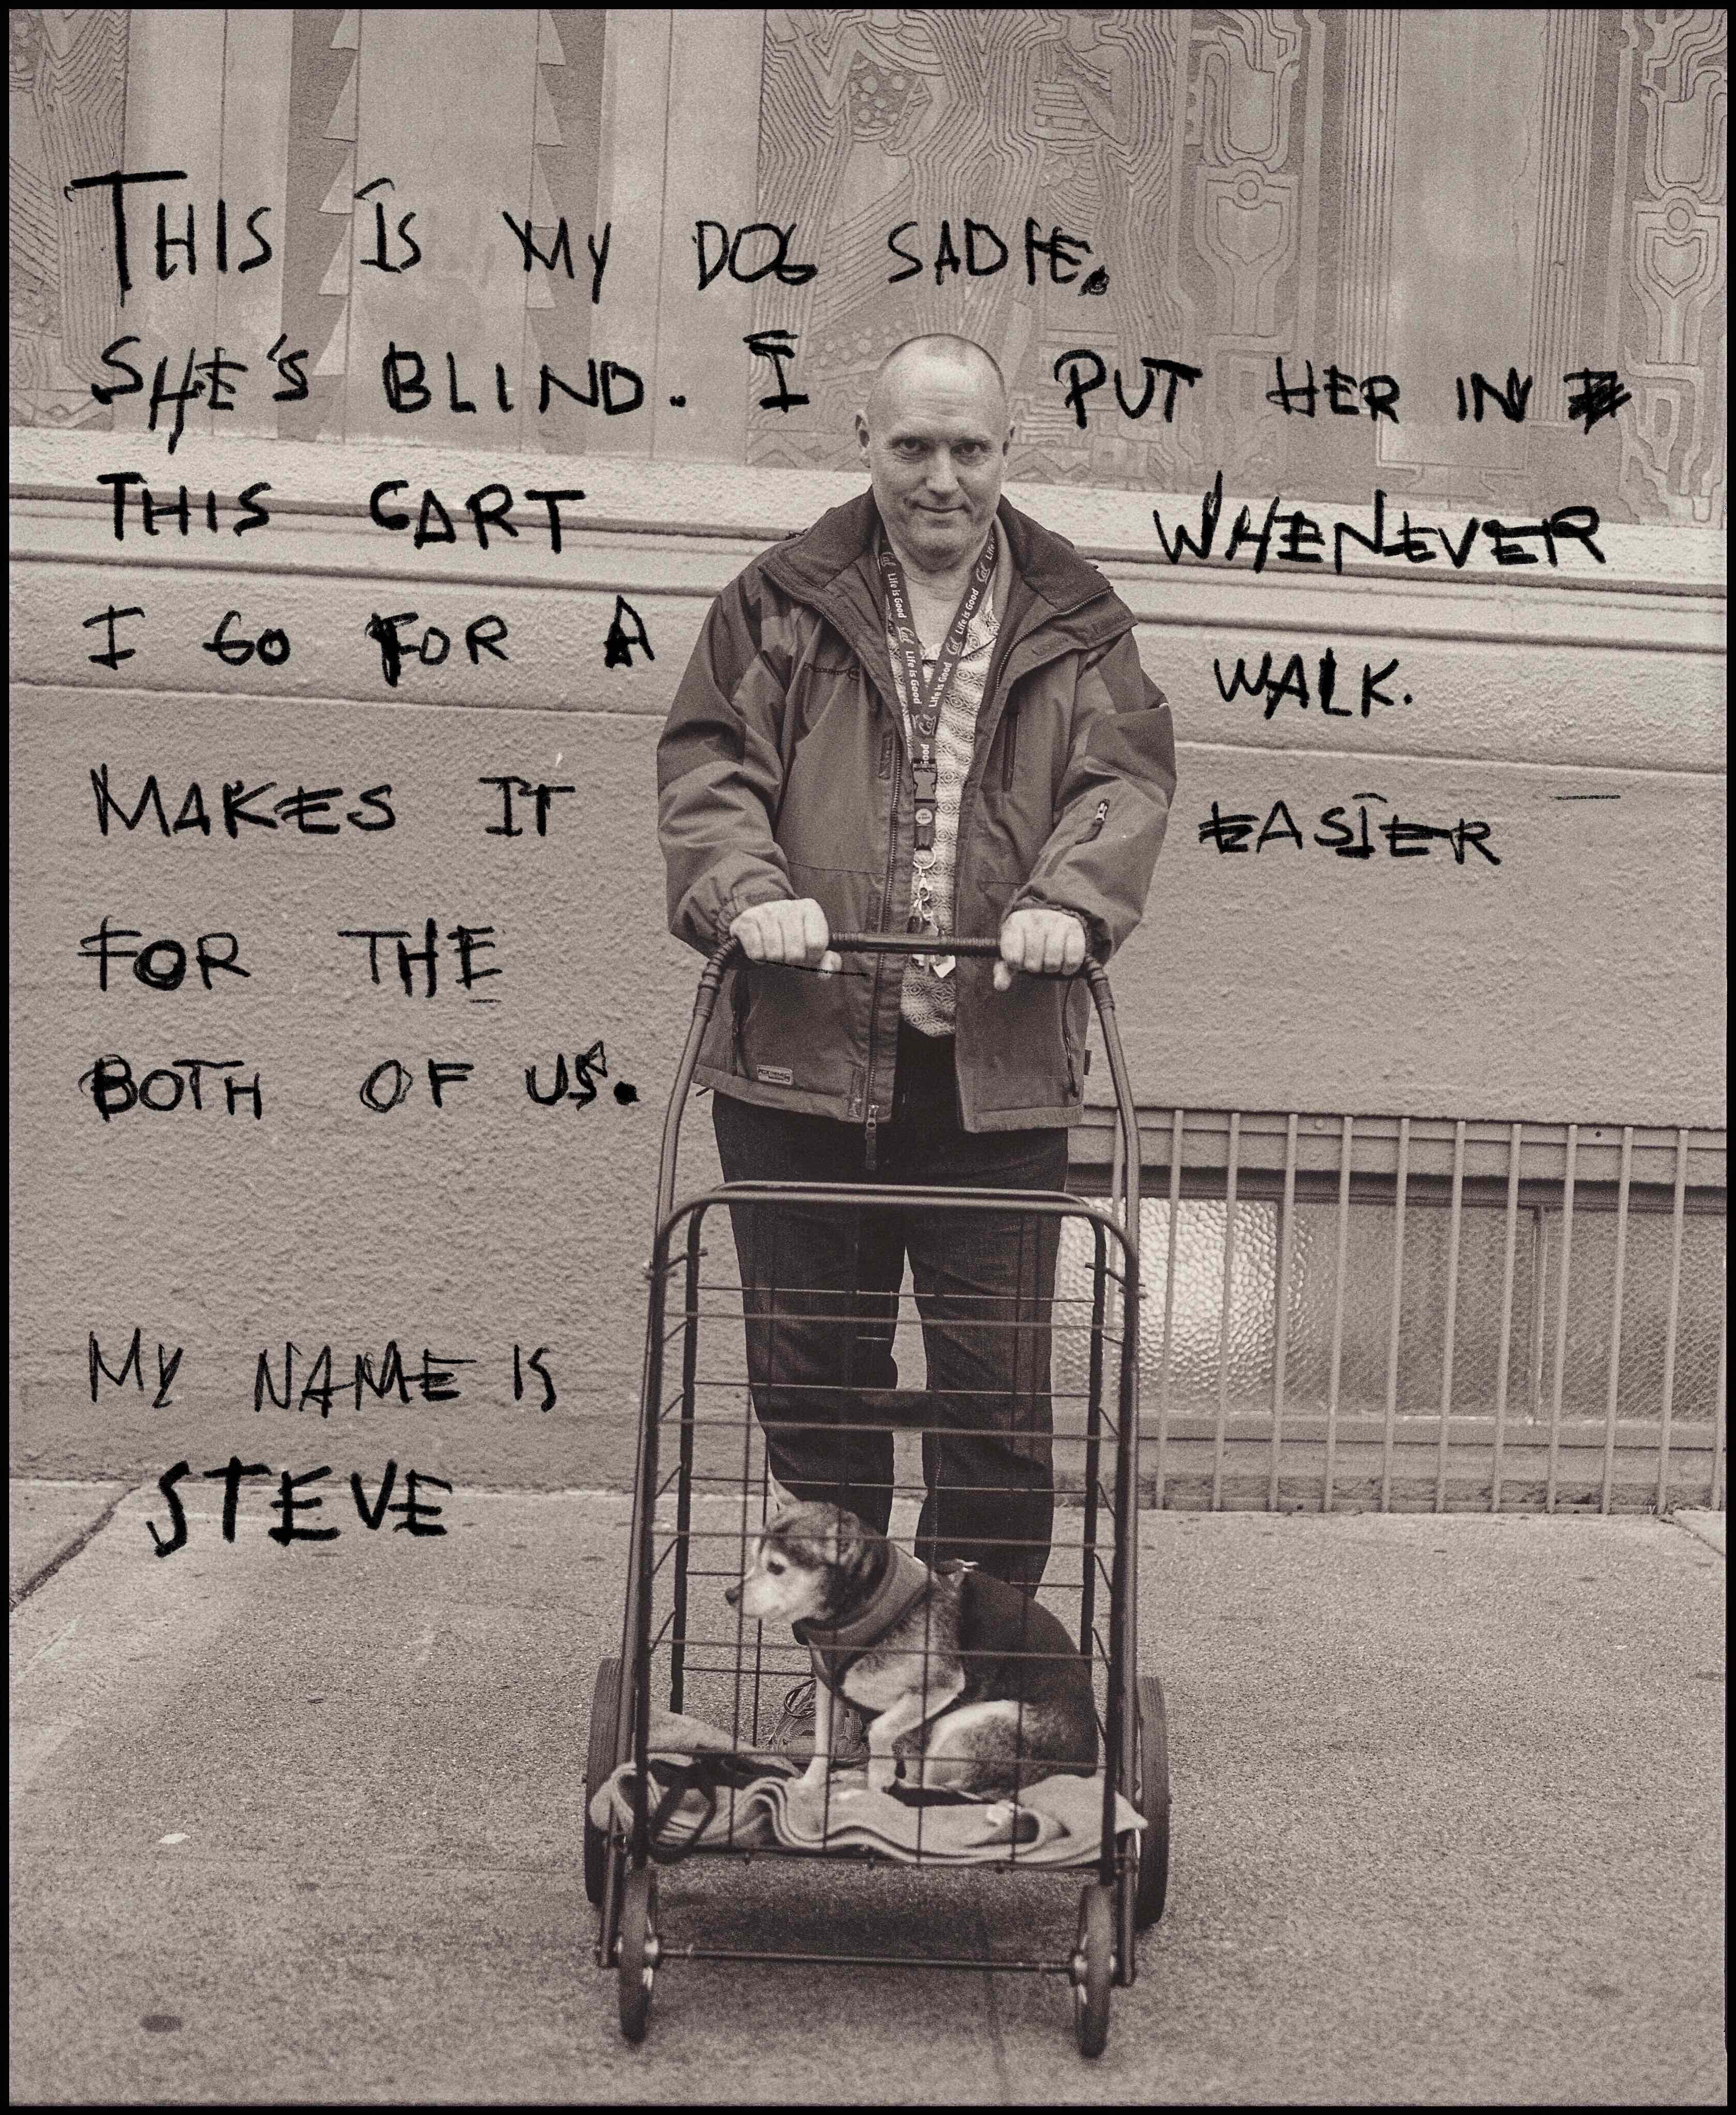 THIS IS MY DOG SADIE.
SHE'S BLIND. I PUT HER IN
THIS CART WHENEVER
I GO FOR A WALK.
MAKES IT EASIER
FOR THE
BOTH OF US.
MY NAME IS
STEVE
Cal Life is Good
Life is Good Cal
Cal Life is Good
Life is Good Cal
Cal
Good